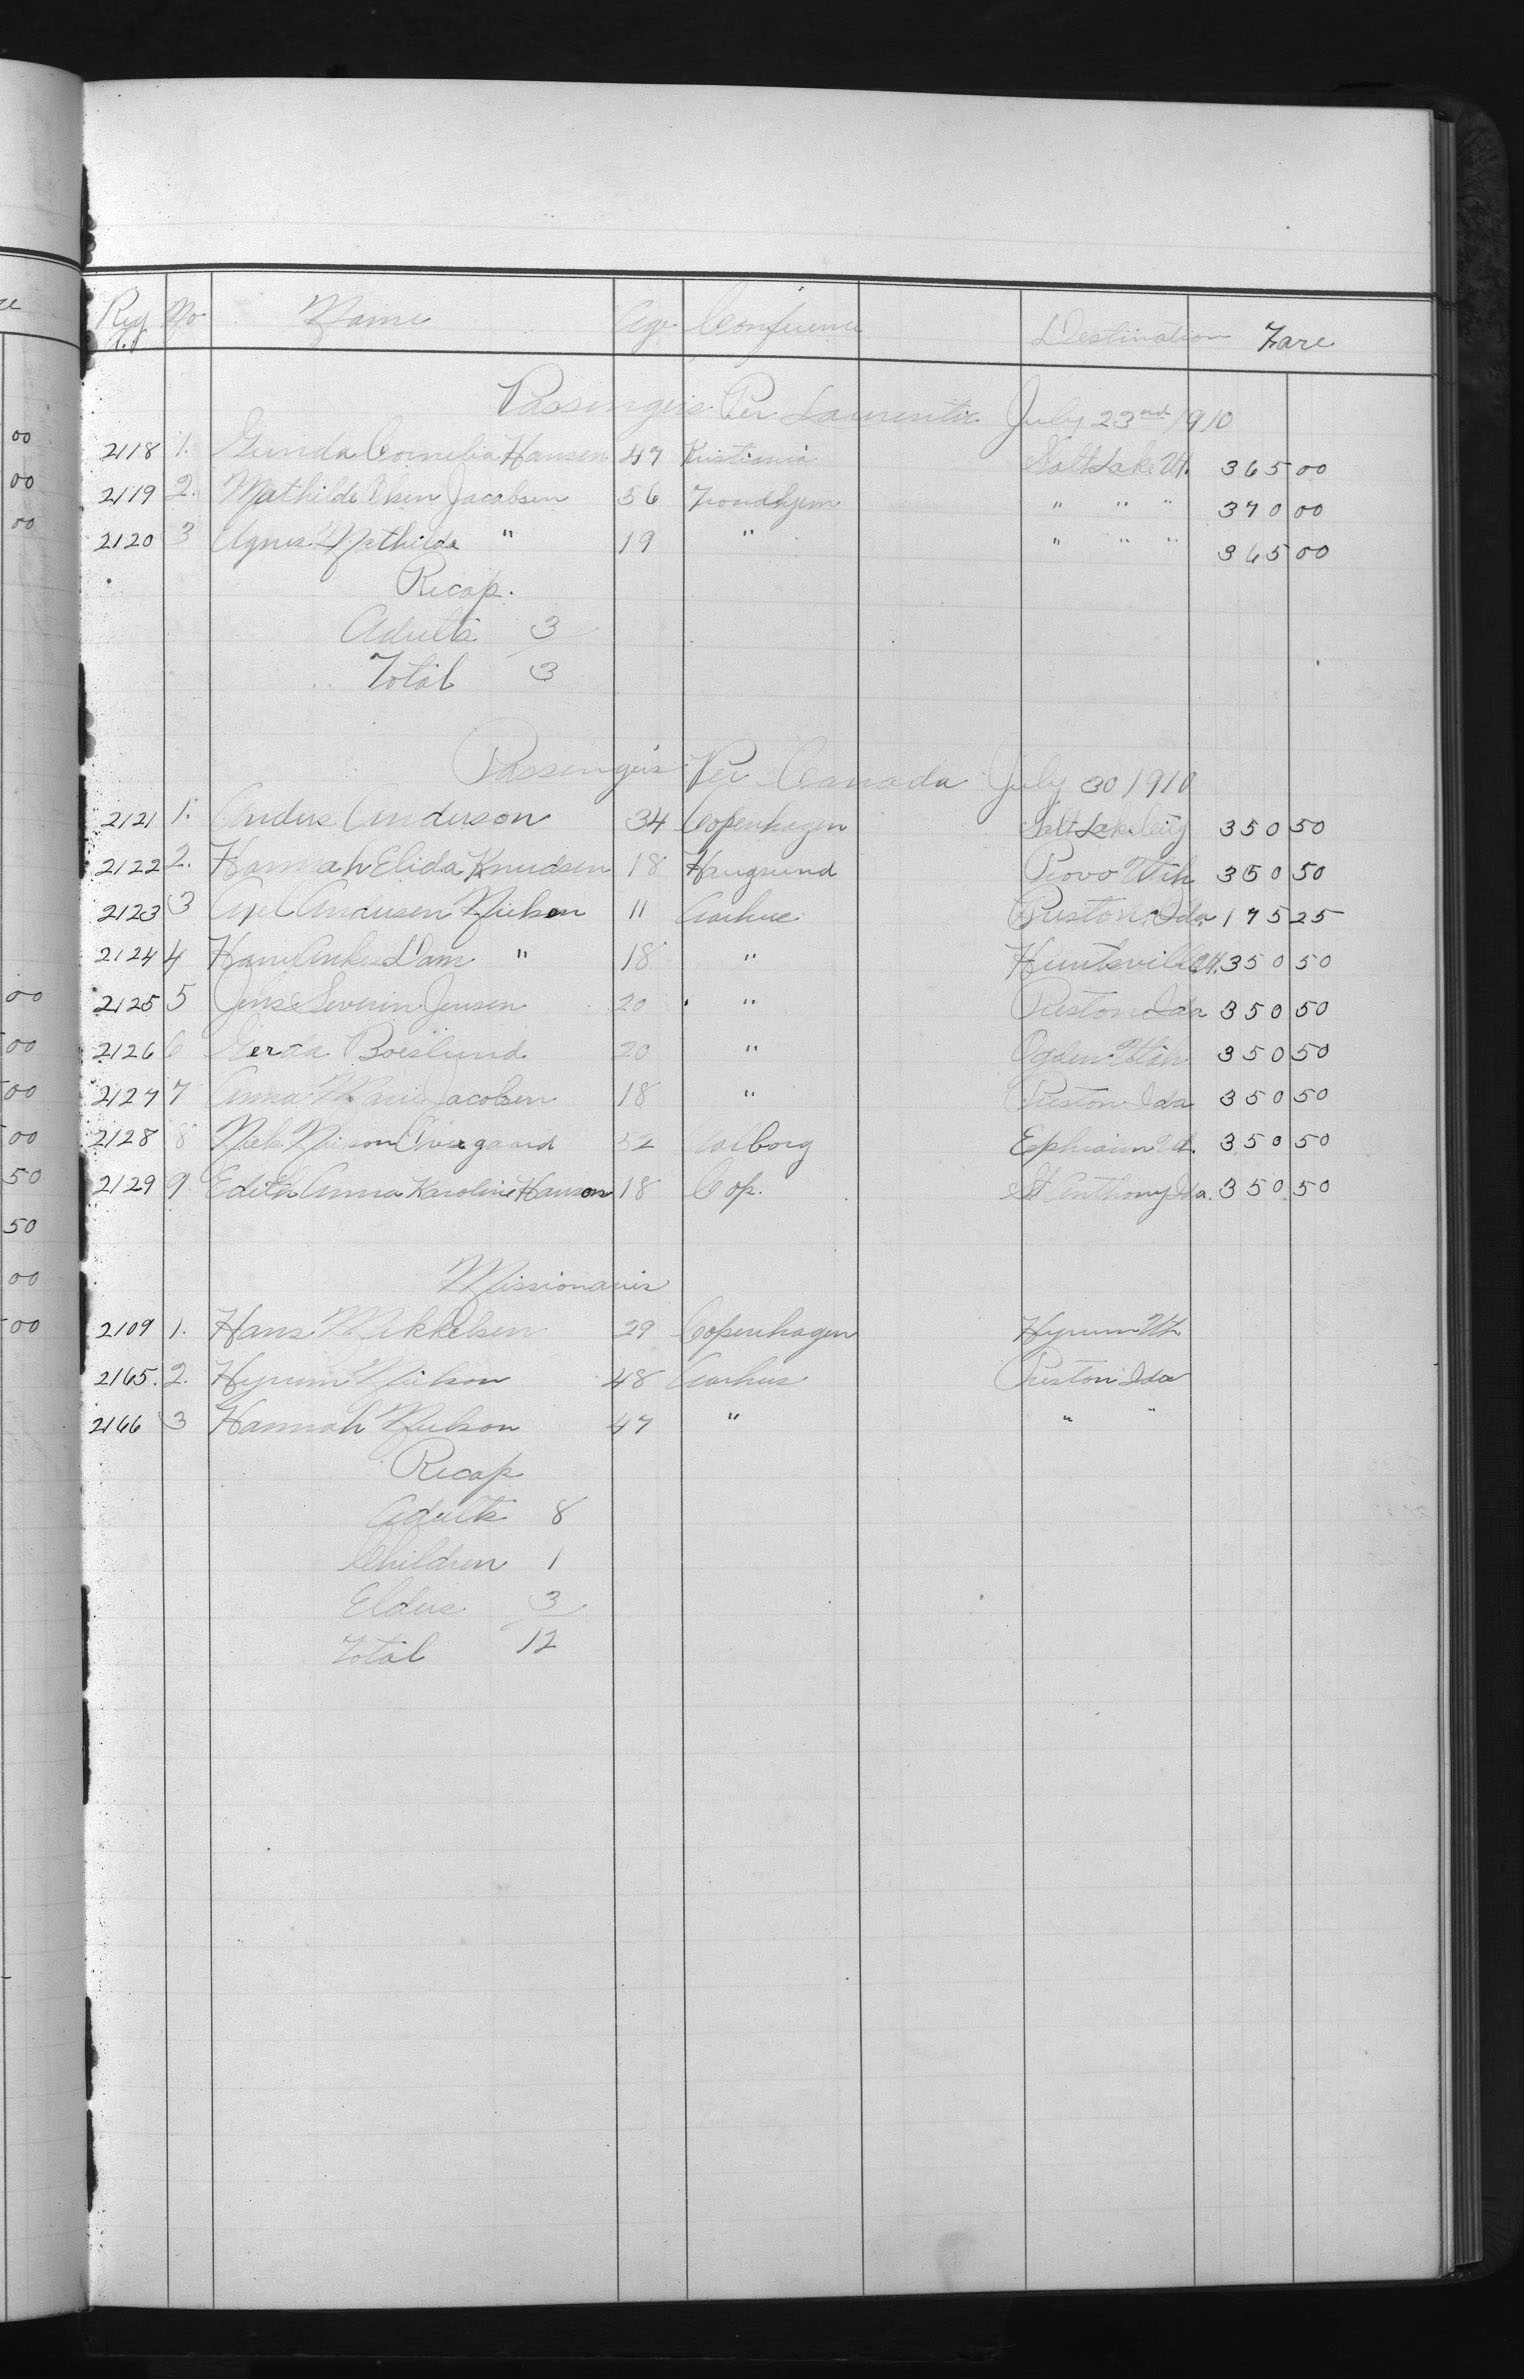 Reg No Name Age Conference Destination Fare
Passengers Per Laurentic July 23rd 1910
2118 1. Gunda Cornelia Hansen 47 Kristiania Salt Lake Ut. 365 00
2119 2. Mathilde Olsen Jacobsen 56 Trondhjem " " " 370 00
2120 3 Agnes Mathilda " 19 " " " " 365 00
Recap.
Adults 3
Total 3
Passengers Per Canada July 30 1910
2121 1. Anders Anderson 34 Copenhagen Salt Lake City 350 50
2122 2. Hannah Elida Knudsen 18 Haugsund Provo Utah 350 50
2123 3 Axel Andersen Nielsen 11 Aarhus Preston Ida 175 25
2124 4 Hans Anker Dam " 18 " Huntsville Ut. 350 50
2125 5 Jens Severin Jensen 20 " Preston Ida 350 50
2126 6 Gerda Boeslund 20 " Ogden Utah 350 50
2127 7 Anna Marie Jacobsen 18 " Preston Ida 350 50
2128 8 Niels 52 Aalborg Ephraim Ut. 350 50
2129 9. Edith Anna Karoline Hanson 18 Cop. St Anthony Ida. 350 50
Missionaries
2109 1. Hans Mikkelsen 29 Copenhagen Hyrum Ut.
2165. 2. Hyrum Nielson 48 Aarhus Preston Ida
2166 3 Hannah Nielson 47 " " "
Recap
Adults 8
Children 1
Elders 3
Total 12
00
00
00
00
00
00
00
50
50
00
00